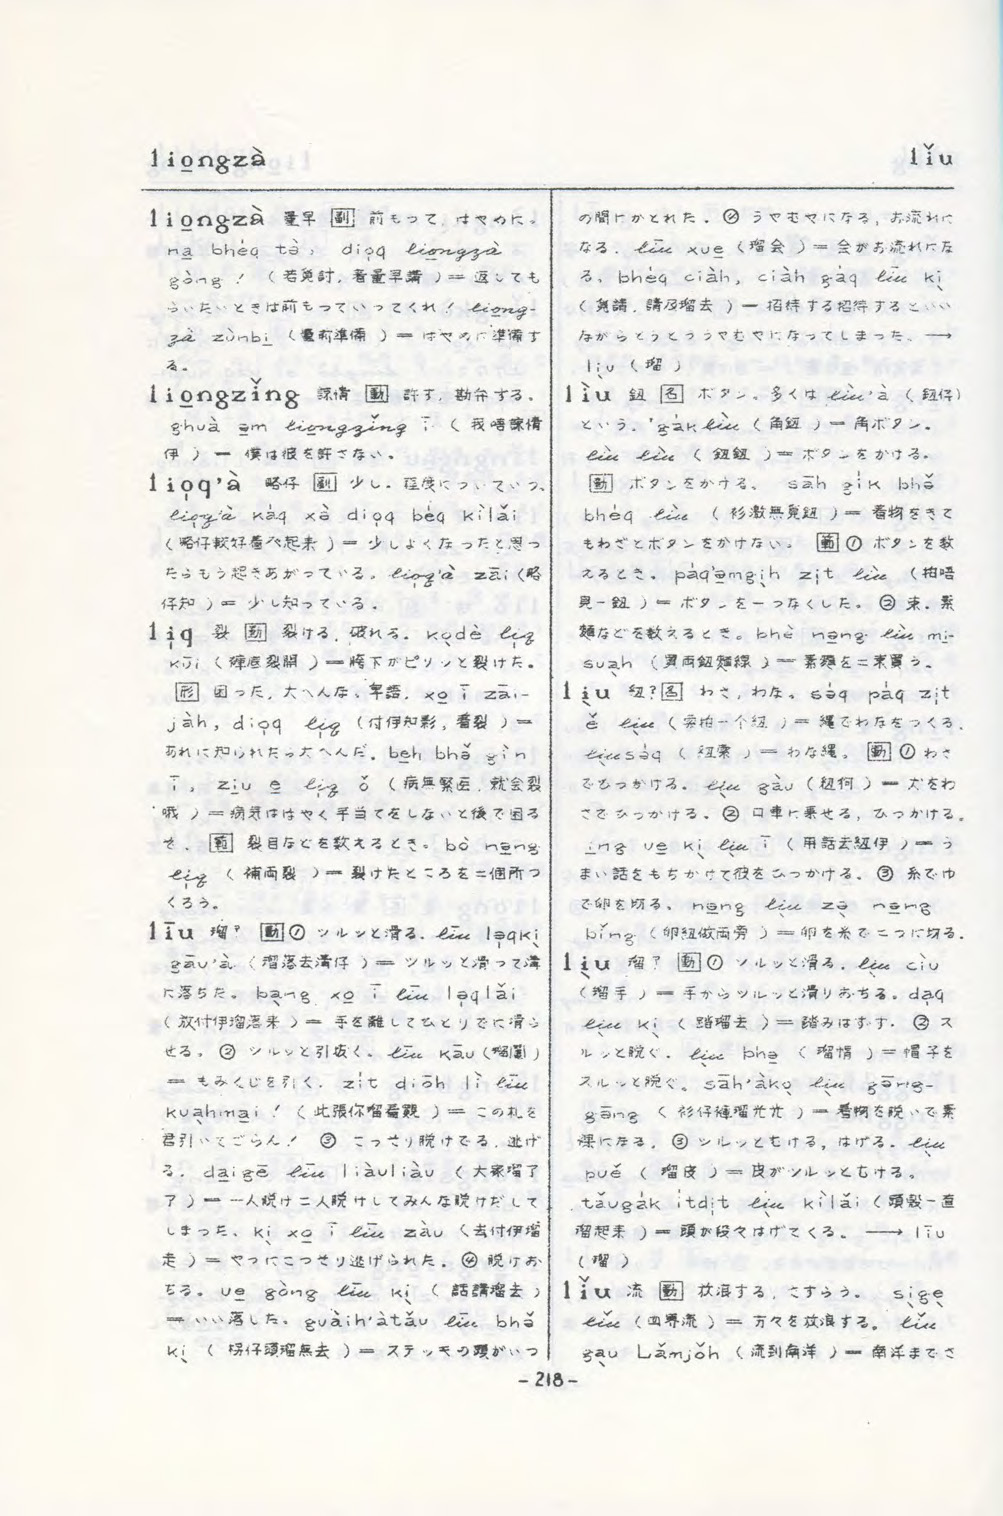 liongzà
lǐu
liongzà 量早 副 前もって,はやめに。
na bhéq tè, dioq liongzà
gòng! (若覓討,着量早講)＝返しても
らいたいときは前もっていってくれ! liong-
zà zùnbi (量前準備)＝はやめに準備す
る。
liongzǐng 諒情 動 許す,勘弁する。
ghuà əm liongzǐng ī (我唔諒情
伊)＝僕は彼を許さない。
lioq'à 略仔 副 少し。程度についていう。
lioq'à káq xè dioq béq kìlǎi
(略仔較好着 起来)＝少しよくなったと思っ
たらもう起きあがっている。lioq'à zāi (略
仔知)＝少し知っている。
liq 裂 動 裂ける,破れる。kodè liq
kūi (褲底裂開)＝胯下がピリッと裂けた。
形 困った,大へんな。 xo ī zāi-
jàh, dioq liq (付伊知影,着裂)＝
あれに知られたら大へんだ。beh bhǒ gìn
ī, ziu e liq ǒ (病無緊医,就会裂
哦)＝病気ははやく手当てをしないと後で困る
ぞ。 範 裂目などを数えるとき。bò nəng
liq (補両裂)＝裂けたところを二個所つ
くろう。
līu 瑠? 動 ① ツルッと滑る。līu ləqki
gāu'à (瑠落去溝仔)＝ツルッと滑って溝
に落ちた。bang xo ī līu ləqlǎi
(放付伊瑠落来)＝手を離してひとりでに滑ら
せる。② ツルッと引抜く。līu kāu (瑠鬮)
＝もみくじを引く。zit diōh lì līu
kuahmai! (此張你瑠看覓)＝この札を
君引いてごらん! ③ こっそり脱けでる,逃げ
る。daigē līu liàuliàu (大家瑠了
了)＝一人脱け二人脱けしてみんな脱けだして
しまった。ki xo ī līu zàu (去付伊瑠
走)＝やつにこっそり逃げられた。④ 脱けお
ちる。ue gòng līu ki (話講瑠去)
＝いい落した。guàih'àtǎu līu bhǒ
ki (柺仔頭瑠無去)＝ステッキの頭がいつ
の間にかとれた。⑤ うやむやになる,お流れに
なる。līu xue (瑠会)＝会がお流れにな
る。bhéq ciàh, ciàh gàq līu ki
(覓請,請及瑠去)＝招待する招待するといい
ながらとうとううやむやになってしまった。→
liu (瑠)
lìu 鈕 名 ボタン。多くは lìu'à (鈕仔)
という。gák lìu (角鈕)＝角ボタン。
lìu lìu (鈕鈕)＝ボタンをかける。
動 ボタンをかける。sāh gìk bhǒ
bhéq lìu (衫激無覓鈕)＝着物をきて
もわざとボタンをかけない。 範 ① ボタンを数
えるとき。páq'əmgih zit lìu (拍唔
見一鈕)＝ボタンを一つなくした。② 束。素
麺などを数えるとき。bhè nəng lìu mi-
suah (買両鈕麺線)＝素麺を二束買う。
liu 紐? 名 わさ,わな。sóq páq zit
ě liu (索拍一个紐)＝縄でわなをつくる。
liusóq (紐索)＝わな縄。 動 ① わさ
でひっかける。liu gàu (紐狗)＝犬をわ
さでひっかける。② 口車に乗せる,ひっかける。
ing ue ki liu ī (用話去紐伊)＝う
まい話をもちかけて彼をひっかける。③ 糸でゆ
で卵を切る。nəng liu zə nəng
bǐng (卵紐做両旁)＝卵を糸で二つに切る。
liu 瑠? 動 ① ツルッと滑る。liu cìu
(瑠手)＝手からツルッと滑りおちる。daq
liu ki (踏瑠去)＝踏みはずす。② ス
ルッと脱ぐ。liu bhə (瑠帽)＝帽子を
スルッと脱ぐ。sāh'àko liu gōng-
gōng (衫仔褲瑠光光)＝着物を脱いで素
裸になる。③ ツルッとむける,はげる。liu
puě (瑠皮)＝皮がツルッとむける。
tǎugák ítdit liu kìlǎi (頭殻一直
瑠起来)＝頭が段々はげてくる。→ līu
(瑠)
lǐu 流 動 放浪する,さすらう。 sìge
lǐu (四界流)＝方々を放浪する。lǐu
gau Lǎmjǒh (流到南洋)＝南洋までさ
- 218 -